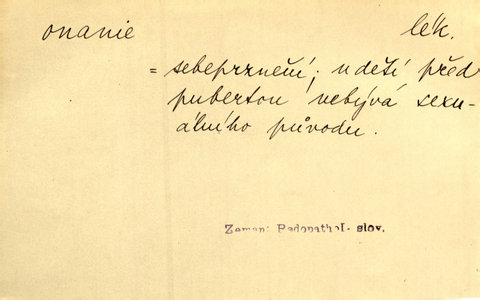 onanie lék.
= sebeprznění; u dětí před
pubertou nebývá sexu-
álního původu.
Zeman: Pedopathol. slov.